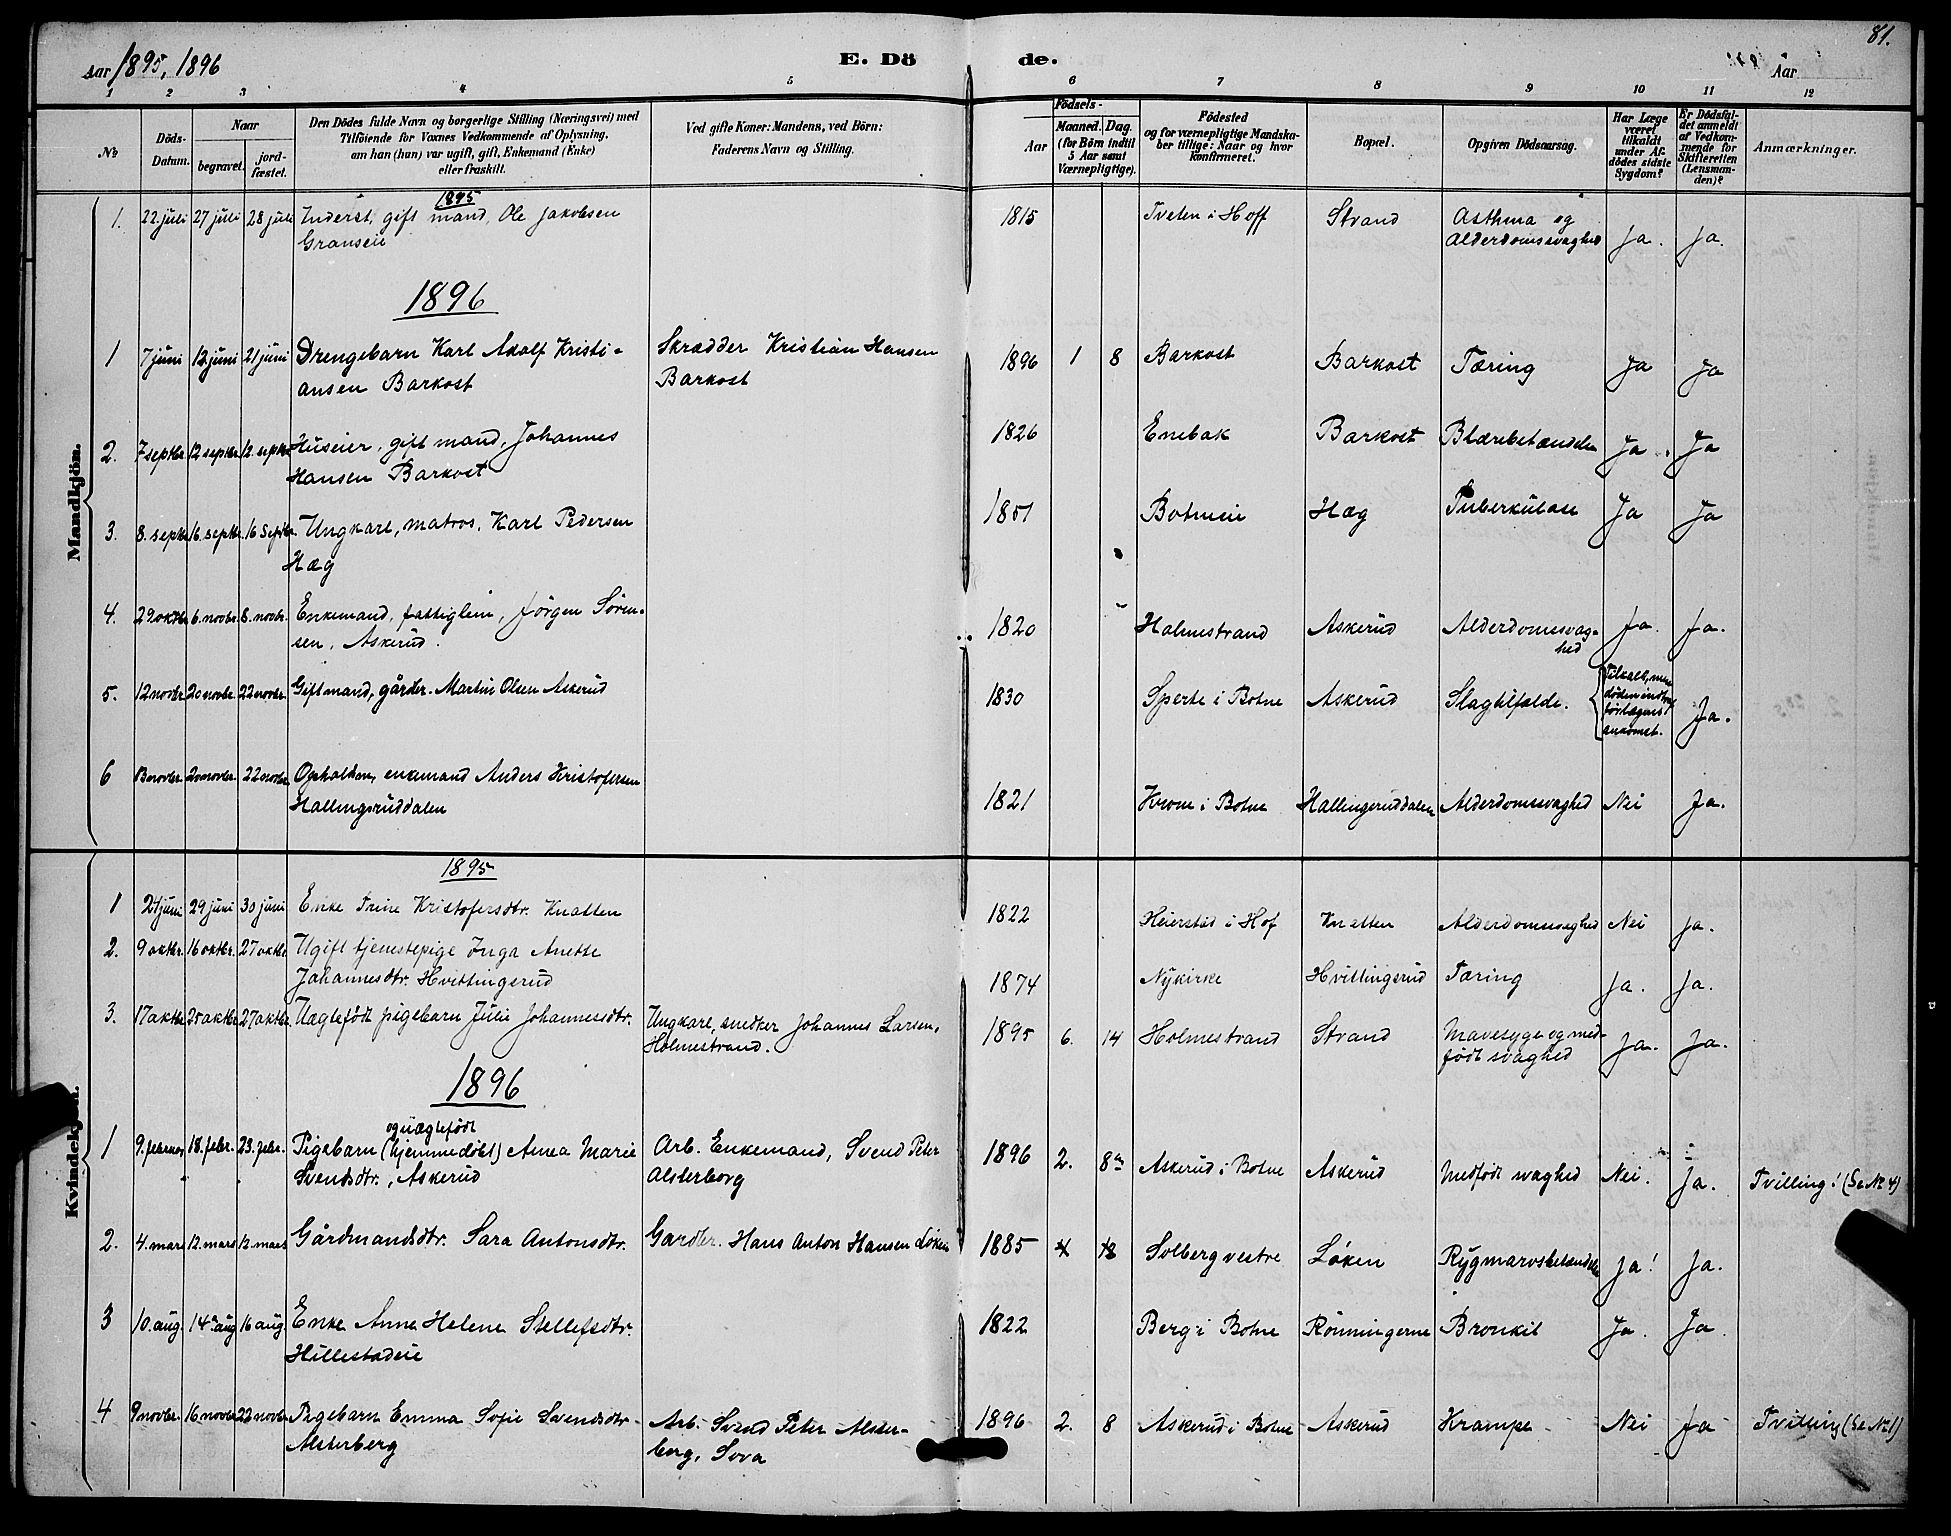 Aar 1895, 1896
E. Dö de.
Aar
81.
1 2 3 4 5 6 7 8 9 10 11 12
No
Döds-Datum.
Naar
begravet.
jordfæstet.
Den Dödes fulde Navn og borgerlige Stilling (Næringsvei) med
Tilföiende for Voxnes Vedkommende af Oplysning,
om han (hun) var ugift, gift, Enkemand (Enke)
eller fraskilt.
Ved gifte Koner: Mandens, ved Börn:
Faderens Navn og Stilling.
Födsels-
Aar
Maaned. Dag.
(for Börn indtil
5 Aar samt
Værnepligtige).
Födested
og for værnepligtige Mandska-
ber tillige: Naar og hvor
konfirmeret.
Bopæl.
Opgiven Dödsaarsag.
Har Læge
været
tilkaldt
under Af-
dödes sidste
Sygdom?
Er Dödsfal-
det anmeldt
af Vedkom-
mende for
Skifteretten
(Lensman-
den)?
Anmærkninger.
Mandkjön.
1895
1. 22. juli 27 juli 28 juli Inderst, gift mand, Ole Jakobsen 1815 Tveten i Hoff Strand Asthma og
Granseie Alderdomssvaghed Ja. Ja.
1896
1 7 juni 12 juni 21 juni Drengebarn Karl Adolf Kristi- Skrædder Kristian Hansen 1896 1 8 Barkost Barkost Tæring Ja Ja
ansen Barkost Barkost
2. 7 septbr. 12 septbr. 12. septbr. Huseier, gift mand, Johannes 1826 Enebak Barkost Blærebetændelse Ja. Ja
Hansen Barkost
3. 8. septbr. 16. septbr. 16 septbr. Ungkarl, matros, Karl Pedersen 1851 Botneie Hæg Tuberkulose Ja Ja
Hæg
4. 29 oktbr. 6. novbr. 8. novbr. Enkemand, fattiglem, Jörgen Sören- 1820 Holmestrand Askerud Alderdomssvag- Ja. Ja.
sen, Askerud. hed
5. 12 novbr. 20 novbr. 22 novbr. Gift mand, gårdbr. Martin Olsen Askerud 1830 Sperte i Botne Askerud Slagtilfælde. Tilkaldt, men
döden indtraf
för lægens
ankomst. Ja.
6 13 novbr. 20 novbr. 22 novbr. Opholdsm, enkemand Anders Kristofersen 1821 Krone i Botne Hallingsruddalen Alderdomssvaghed Nei Ja.
Hallingsruddalen
Kvindekjön.
1895
1 24 juni 29 juni 30 juni Enke Trine Kristofersdtr. Knatten 1822 Heierstad i Hof Knatten Alderdomssvaghed Nei Ja.
2. 9 oktbr. 16 oktbr. 27 oktbr. Ugift tjenestepige Inga Anette
Johannesdtr. Hvittingsrud 1874 Nykirke Hvittingsrud Tæring Ja. Ja.
3. 17 oktbr 25 oktbr 27 oktbr. Uægtefödt pigebarn Julie Johannesdtr. Ungkarl, snedker Johannes Larsen, 1895 6. 14 Holmestrand Strand Mavesyge og med-
Holmestrand. födt svaghed Ja. Ja.
1896
og uægtefödt
1 9. februar 18. febr. 23. febr. Pigebarn (hjemmedöbt) Anna Marie Arb. Enkemand, Svend Peter 1896 2. 8 Askerud i Botne Askerud Medfödt svaghed Nei. Ja. Tvilling! (Se No 4)
Svendsdtr., Askerud Alsterberg
2. 4. mars 12. mars 12. mars Gårdmandsdtr. Sara Antonsdtr. Gardbr. Hans Anton Hansen Löken 1885 4 18 Solberg vestre Löken Rygmarvsbetændelse Ja! Ja.
3 10. aug 14. aug 16 aug. Enke Anne Helene Stellefsdtr. 1822 Berg i Botne Rönningerne Bronkit Ja. Ja.
Hillestadeie
4 9 novbr. 16 novbr 22 novbr. Pigebarn Emma Sofie Svendsdtr. Arb. Svend Peter Alster- 1896 2. 8 Askerud i Botne Askerud Krampe Nei Ja Tvilling (Se No 1)
Alsterberg berg, Sova